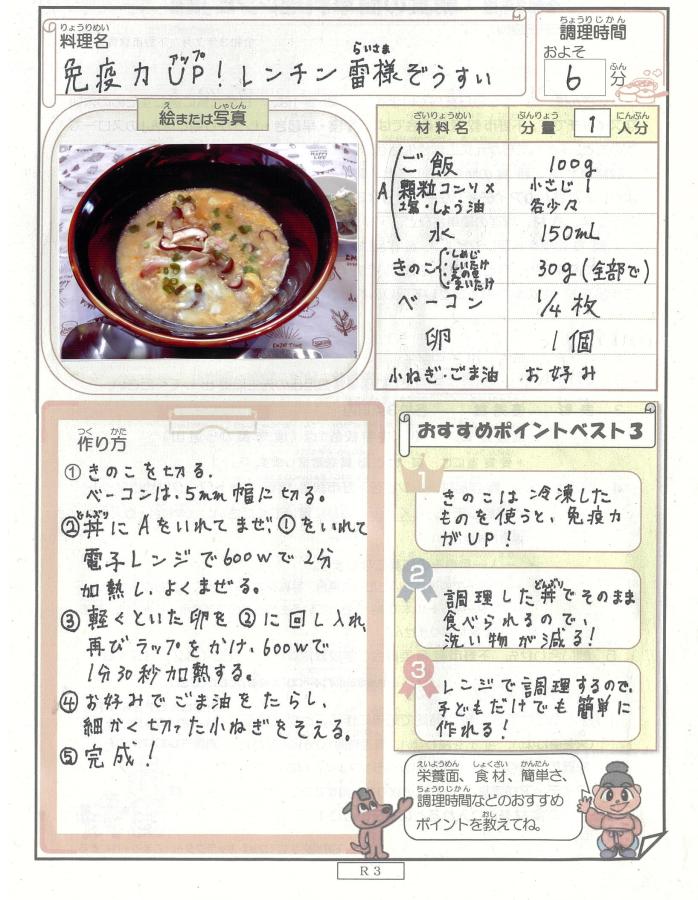 りょうりめい
料理名
アップ らいさま
免疫力UP!レンチン雷様ぞうすい
ちょうりじかん
調理時間
およそ
6分
ぷん
え しゃしん
絵または写真
ざいりょうめい ぶんりょう にんぶん
材料名 分量 1 人分
A ご飯 100g
顆粒コンソメ 小さじ1
塩・しょう油 各少々
水 150mL
きのこ ・しめじ ・しいたけ ・えのき ・まいたけ 30g(全部で)
ベーコン 1/4枚
卵 1個
小ねぎ・ごま油 お好み
つく かた
作り方
①きのこを切る.
ベーコンは.5mm幅に切る。
どんぶり
②丼にAをいれてまぜ.①をいれて
電子レンジで600wで2分
加熱し.よくまぜる。
③軽くといた卵を②に回し入れ
再びラップをかけ.600wで
1分30秒加熱する。
④お好みでごま油をたらし.
細かく切った小ねぎをそえる。
⑤完成!
おすすめポイントベスト3
1
きのこは冷凍した
ものを使うと、免疫力
がUP!
2
どんぶり
調理した丼でそのまま
食べられるので、
洗い物が減る!
3
レンジで調理するので.
子どもだけでも簡単に
作れる!
えいようめん しょくざい かんたん
栄養面、食材、簡単さ、
ちょうりじかん
調理時間などのおすすめ
おし
ポイントを教えてね。
R3